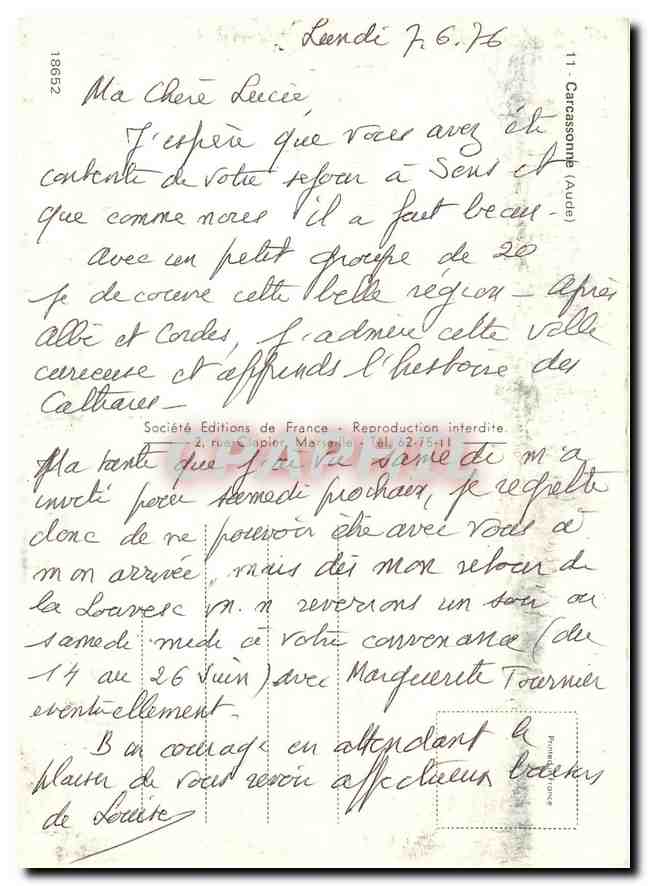 Lundi 7.6.76
11 - Carcassonne (Aude)
18652
Ma Chère Lucie,
J'espère que vous avez été
contente de votre séjour à Sens et
que comme nous il a fait beau -
Avec un petit groupe de 20
je découvre cette belle région - Après
Albi et Cordes, j'admire cette ville
curieuse et apprends l'histoire des
Cathares -
Société Editions de France - Reproduction interdite.
2, rue Clapier, Marseille - Tél. 62-75-11
Ma tante que j'ai vu samedi m'a
invité pour samedi prochain, je regrette
donc de ne pouvoir être avec vous à
mon arrivée, mais dès mon retour de
la Louvesc n. n reverrons un soir ou
samedi midi à votre convenance (du
14 au 26 Juin) avec Marguerite Tournier
éventuellement.
Bon courage en attendant le
plaisir de vous revoir affectueux baisers
de Louise
Printed in France